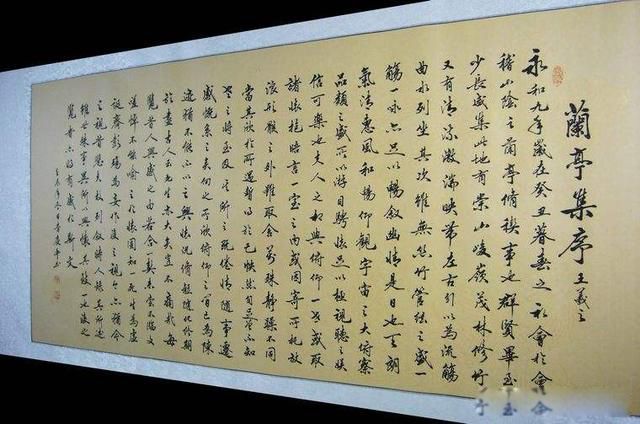 蘭亭集序 王羲之
永和九年歲在癸丑暮春之初會於會
稽山陰之蘭亭脩禊事也群賢畢至
少長咸集此地有崇山峻嶺茂林修竹
又有清流激湍映帶左右引以為流觴
曲水列坐其次雖無絲竹管弦之盛一
觴一詠亦足以暢敘幽情是日也天朗
氣清惠風和暢仰觀宇宙之大俯察
品類之盛所以游目騁懷足以極視聽之娛
信可樂也夫人之相與俯仰一世或取
諸懷抱晤言一室之內或因寄所託放
浪形骸之外雖取舍萬殊靜躁不同
當其欣於所遇暫得於己快然自足不知
老之將至及其所之既倦情隨事遷
感慨係之矣向之所欣俯仰之間已為陳
迹猶不能不以之興懷況脩短隨化終期
於盡古人云死生亦大矣豈不痛哉每
覽昔人興感之由若合一契未嘗不臨文
嗟悼不能喻之於懷固知一死生為虛
誕齊彭殤為妄作後之視今亦猶今
之視昔悲夫故列敘時人錄其所述
雖世殊事異所以興懷其致一也後之
覽者亦將有感於斯文